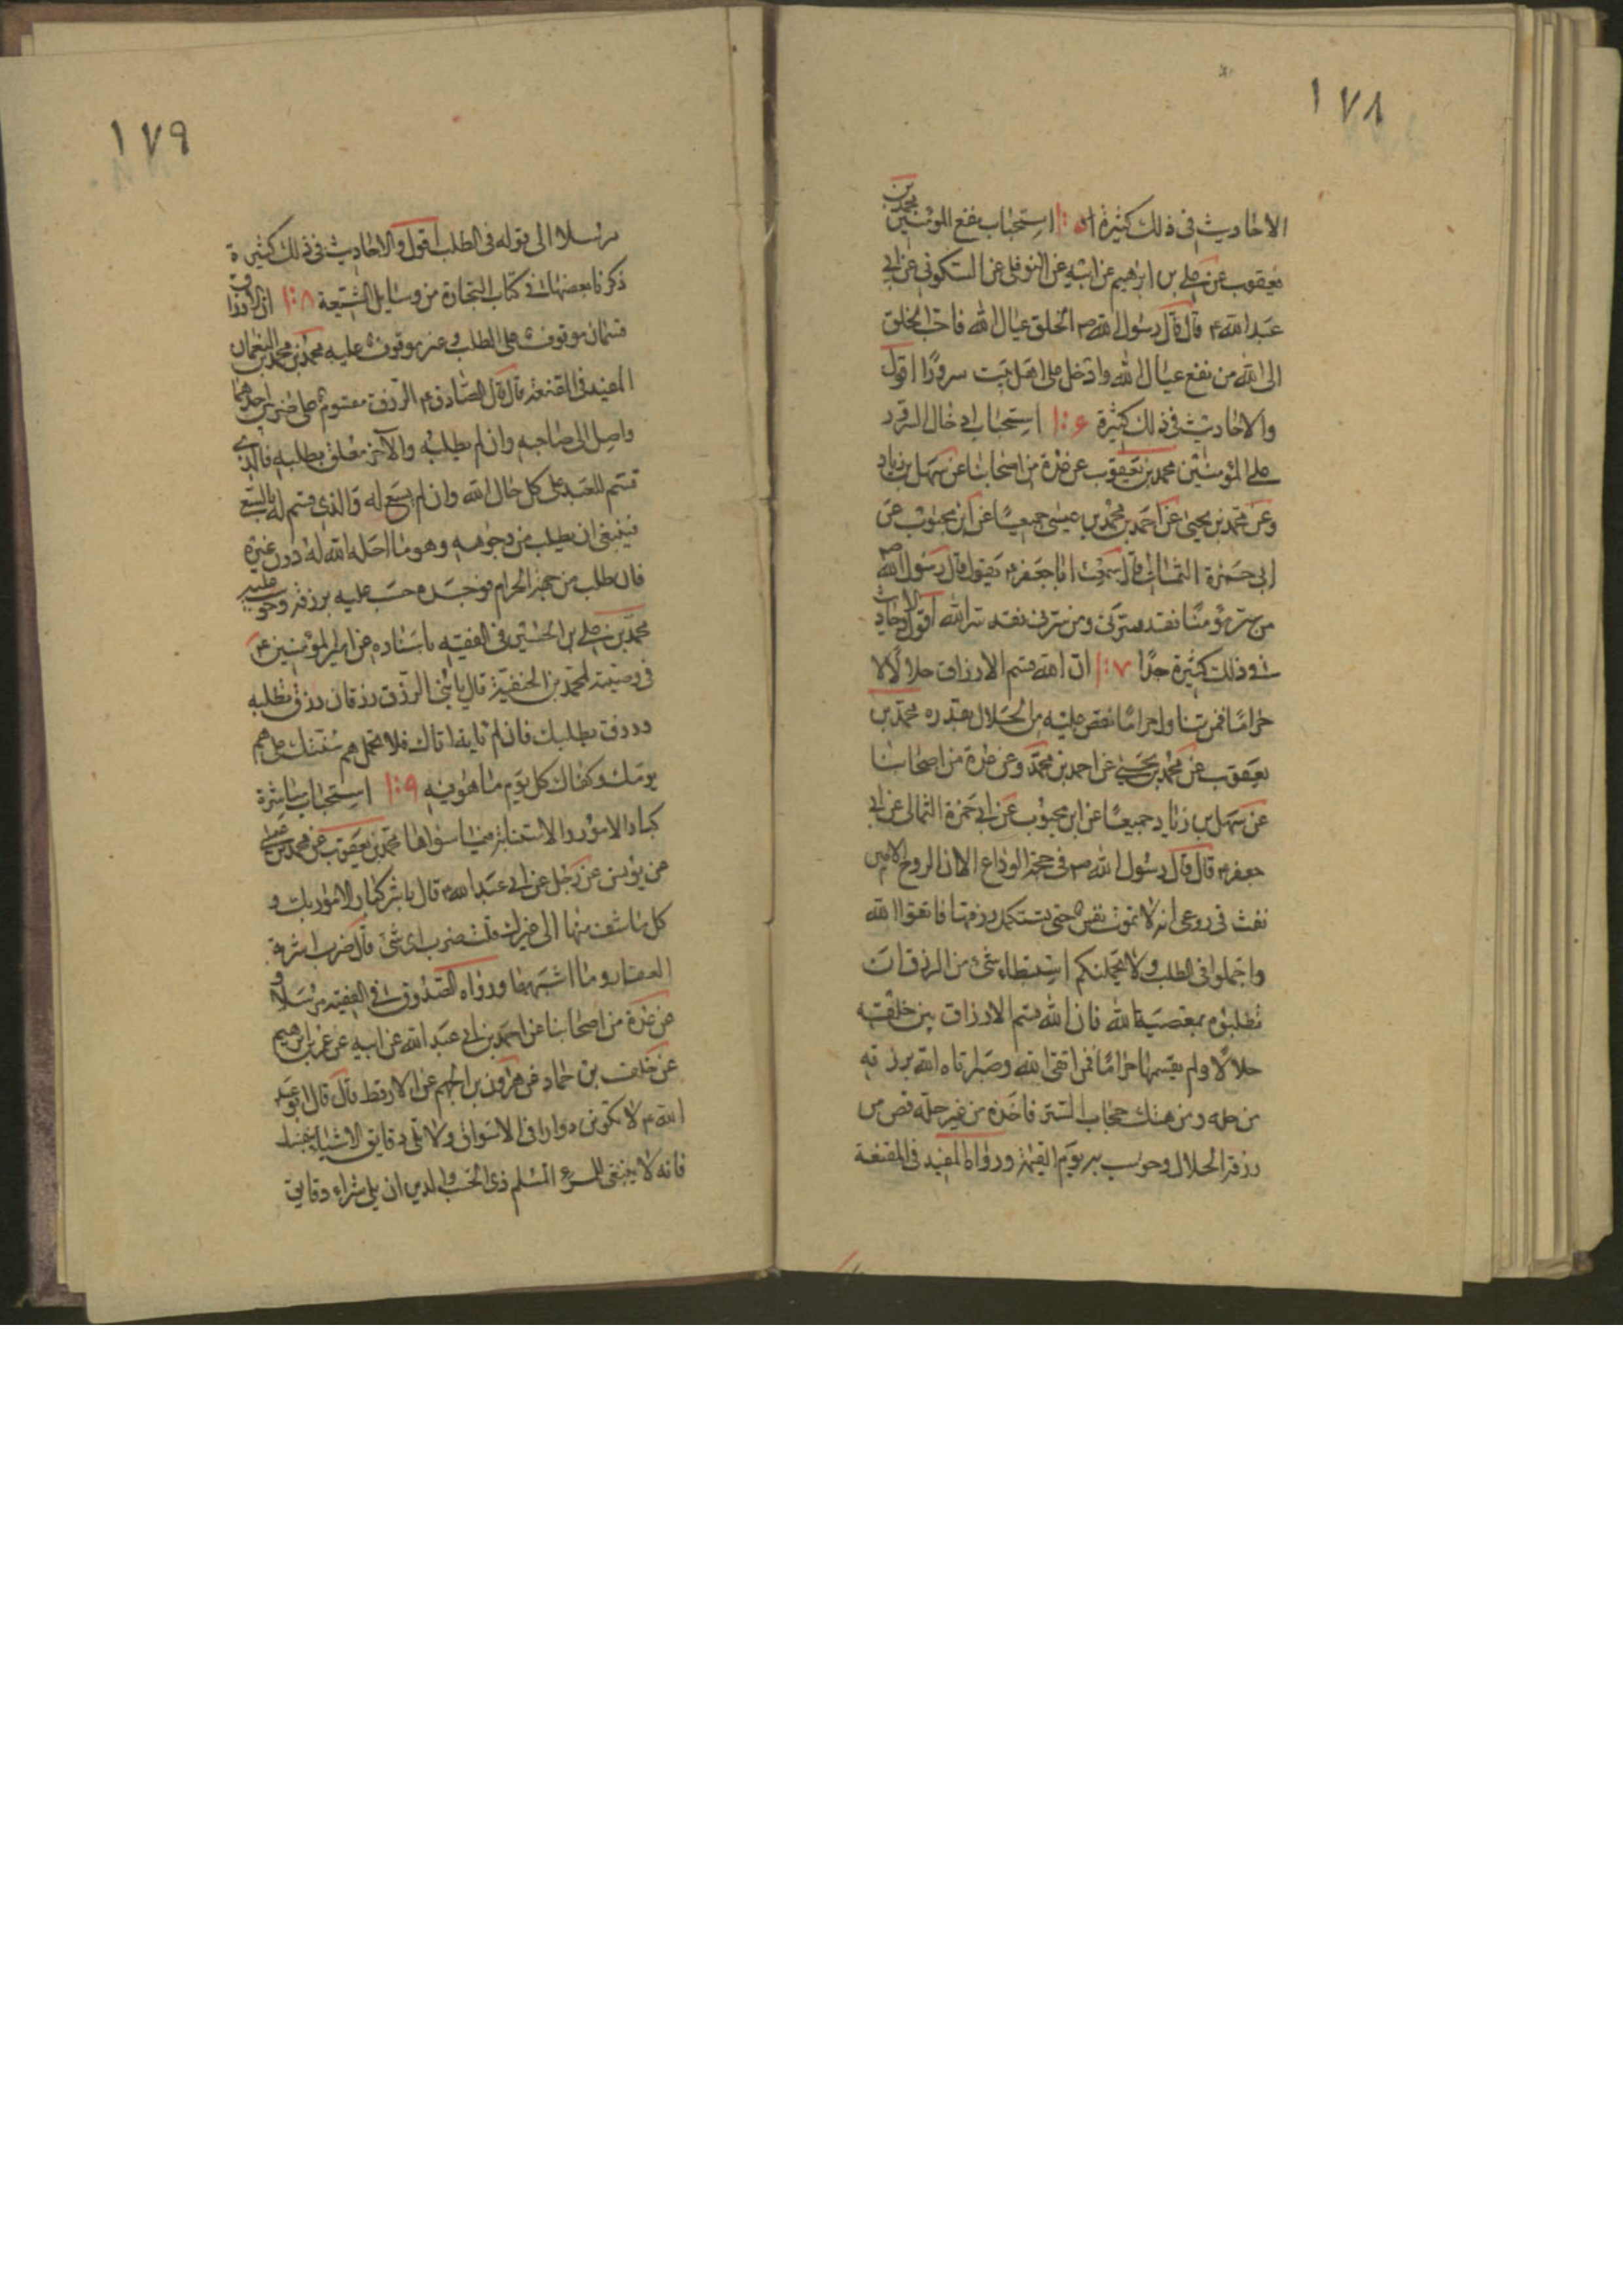 ١٧٨
الاحاديث فى ذلك كثيرة ١٠٥ استحباب نفع المومنين محمد بن
يعقوب عن على بن ابرهيم عن ابيه عن النوفلى عن السكونى عن ابى
عبد الله ع قال قال رسول الله ص الخلق عيال الله فاحب الخلق
الى الله من نفع عيال الله وادخل على اهل بيت سرورًا اقول
والاحاديث فى ذلك كثيرة ١٠۶ استحباب ادخال السرور
على المؤمنين محمد بن يعقوب عن عدة من اصحابنا عن سهل بن زياد
وعن محمد بن يحيى عن احمد بن محمد بن عيسى جميعًا عن ابن محبوب عن
ابى حمزة الثمالى قال سمعت ابا جعفر ع يقول قال رسول الله ص
من سر مؤمنًا فقد سرنى ومن سرنى فقد سر الله اقول والاحاديث
فى ذلك كثيرة جدًا ١٠٧ ان الله قسم الارزاق حلالًا لا
حرامًا فمن تناول حرامًا نقص عليه من الحلال بقدره محمد بن
يعقوب عن محمد بن يحيى عن احمد بن محمد وعن عدة من اصحابنا
عن سهل بن زياد جميعًا عن ابن محبوب عن ابى حمزة الثمالى عن ابى
جعفر ع قال قال رسول الله ص فى حجة الوداع الا ان الروح الامين
نفث فى روعى انه لا تموت نفس حتى تستكمل رزقها فاتقوا الله
واجملوا فى الطلب ولا يحملنكم استبطاء شئ من الرزق ان
تطلبوه بمعصية الله فان الله قسم الارزاق بين خلقه
حلالًا ولم يقسمها حرامًا فمن اتقى الله وصبر اتاه الله برزقه
من حله ومن هتك حجاب الستر فاخذه من غير حله قص من
رزقه الحلال وحوسب به يوم القيمة ورواه المفيد فى المقنعة
١٧٩
مرسلا الى قوله فى الطلب اقول والاحاديث فى ذلك كثيرة
ذكرنا بعضها فى كتاب التجارة من وسايل الشيعة ١٠٨ ان الارزاق
قسمان موقوف على الطلب وغير موقوف عليه محمد بن محمد بن النعمان
المفيد فى المقنعة قال قال الصادق ع الرزق مقسوم على ضربين احدهما
واصل الى صاحبه وان لم يطلبه والآخر معلق بطلبه فالذى
قسم للعبد على كل حال اتيه وان لم يسع له والذى قسم له بالسعى
فينبغى ان يطلب من وجوهه وهو ما احله الله له دون غيره
فان طلب من جهة الحرام فوجده حسب عليه برزقه وحوسب عليه
محمد بن على بن الحسين فى الفقيه باسناده عن امير المؤمنين ع
فى وصيته لمحمد بن الحنفية قال يا بنى الرزق رزقان رزق تطلبه
ورزق يطلبك فان لم تاته اتاك فلا تحمل هم سنتك على هم
يومك وكفاك كل يوم ما هو فيه ١٠٩ استحباب مباشرة
كبار الامور والاستنابة فيما سواها محمد بن يعقوب عن محمد بن عيسى
عن يونس عن رجل عن ابى عبد الله ع قال باشر كبار الامور بك و
كل ما شف منها الى غيرك قلت ضرب اى شئ قال ضرب اشرية
العقار وما اشبهها ورواه الصدوق فى الفقيه مرسلا و
عن عدة من اصحابنا عن احمد بن ابى عبد الله عن ابيه عن عمر بن ابرهيم
عن خلف بن حماد عن هرون بن الجهم عن الارقط قال قال ابو عبد
الله ع لا تكونن دوارا فى الاسواق ولا تلى دقايق الاشياء بنفسك
فانه لا ينبغى للمرء المسلم ذى الحسب والدين ان يلى شراء دقايق